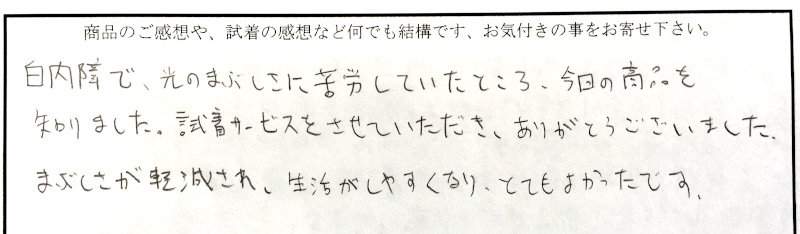 商品のご感想や、試着の感想など何でも結構です、お気付きの事をお寄せ下さい。
白内障で、光のまぶしさに苦労していたところ、今回の商品を
知りました。試着サービスをさせていただき、ありがとうございました。
まぶしさが軽減され、生活がしやすくなり、とてもよかったです。